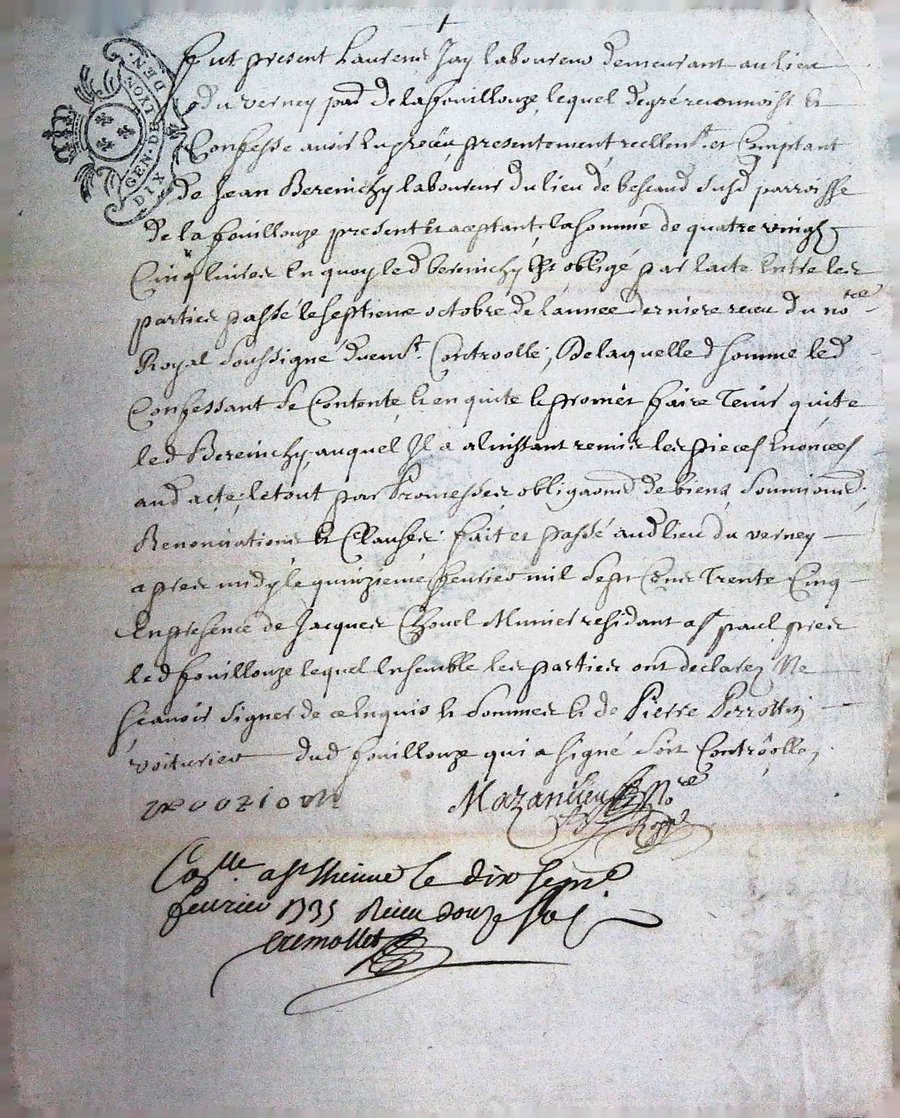 GEN. DE LYON
DIX DEN.
Fut present Laurens Jay laboureur demeurant au lieu
du verney paād de la fouillouze, lequel de gré reconnoist et
Confesse avoir Eu et reçeu, presentement reellemt. et Comptant
de Jean Bereinchy laboureur du lieu de bessaud susd parroisse
de la fouillouze present et aceptant, la somme de quatre vingt
Cinq livres En quoy led bereinchy Est obligé par lacte Entre les
parties passé le septieme octobre de l'année derniere receu du nore
Royal soussigné duemt. Controollé, De laquelle d somme led
Confessant se Contente, et en quite et promet faire Tenir quite
led Bereinchy, auquel Il a alinstant remis les pieces Enoncées
aud acte, le tout par Promesses, obligaons de biens, soumions,
Renonciations Et Clauses fait et passé aud lieu du verney
apres midy le quinzieme feuvrier mil sept Cens Trente Cinq
En presence de Jacques Chouol Munier residant a st paul pres
led fouillouze lequel Ensemble les parties ont declarez Ne
sçavoir signer de ce Enquis et sommes et de Pierre Perrottin
voiturier dud fouillouze qui a signé soit Contròollé,
Mazenilieu Nore
Royal
Collé a St Etienne le dix sept
feuvrier 1735 Reçu douze sols
Cremollet